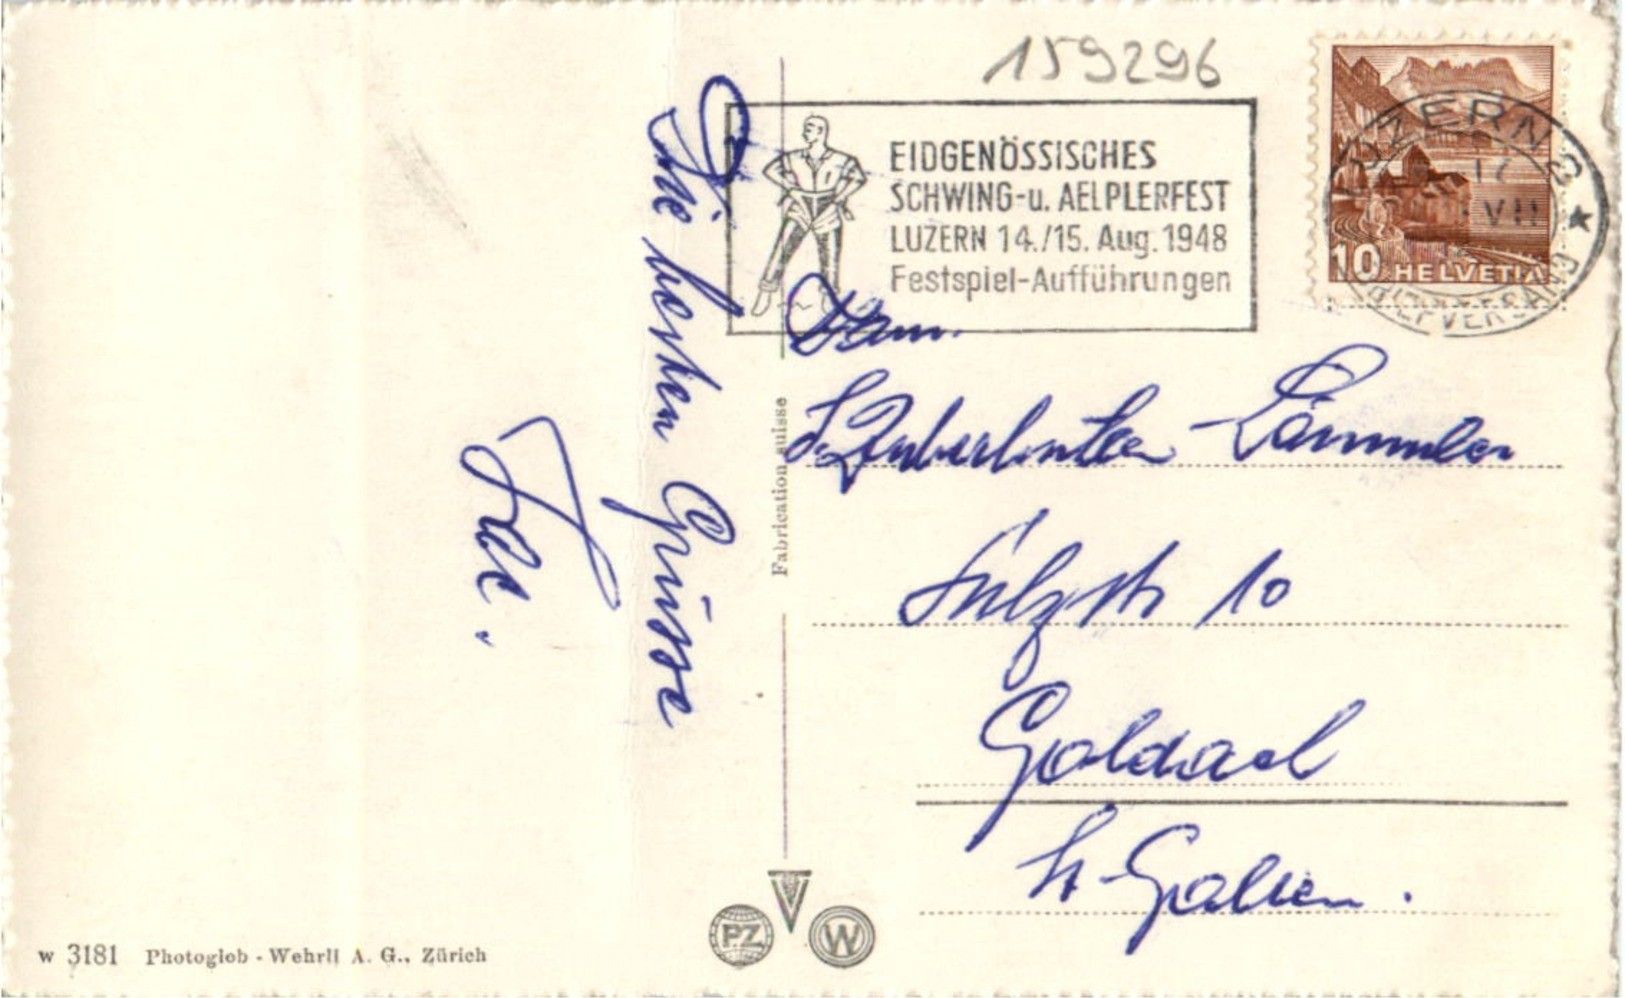 159296
EIDGENÖSSISCHES
SCHWING-u. AELPLERFEST
LUZERN 14./15. Aug. 1948
Festspiel-Aufführungen
LUZERN 2
VII
BRIEFVERSAND
10 HELVETIA
Die besten Grüsse
Fam.
-Lämmler
Sulzstr 10
Goldach
St-Gallen.
Fabrication suisse
PZ
W
w 3181 Photoglob - Wehrli A. G., Zürich